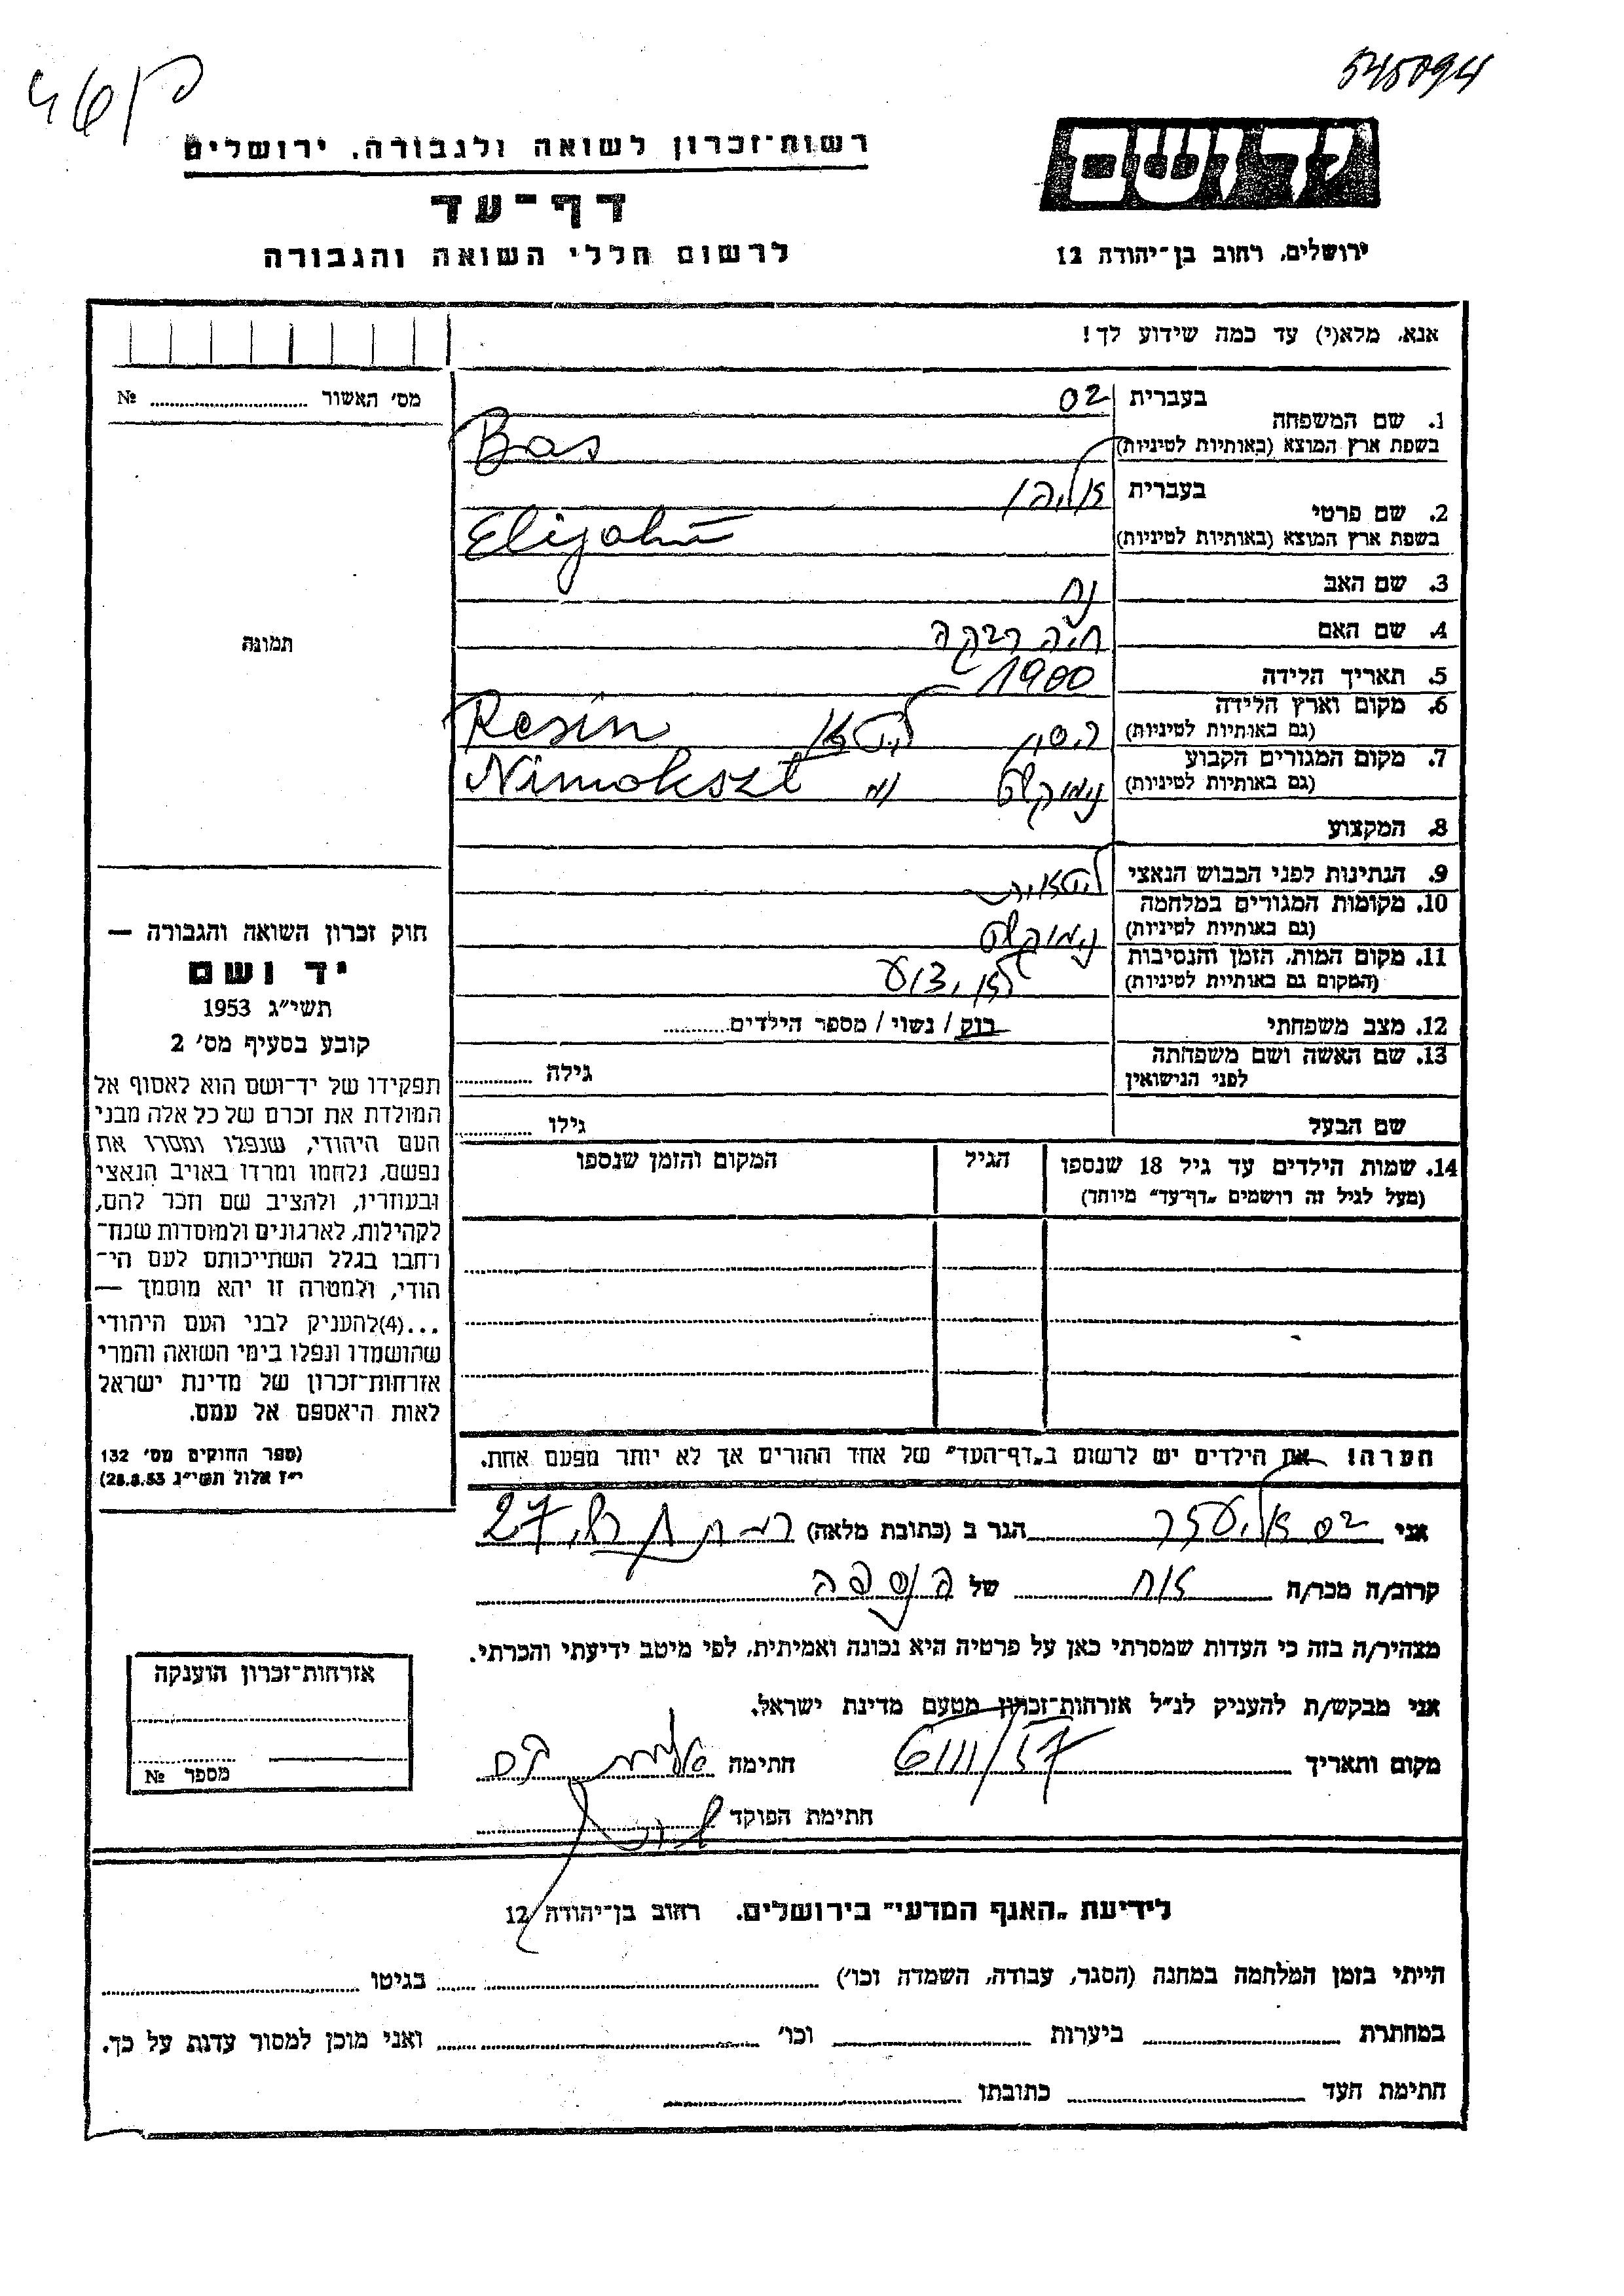 545094
רשות־זכרון לשואה ולגבורה, ירושלים
דף־עד
לרשום חללי השואה והגבורה
יד ושם
ירושלים, רחוב בן־יהודה 12
אנא, מלא(י) עד כמה שידוע לך!
מס׳ האשור № 
תמונה
1. שם המשפחה
בעברית בס
בשפת ארץ המוצא (באותיות לטיניות) Bas
2. שם פרטי
בעברית אליהו
בשפת ארץ המוצא (באותיות לטיניות) Elijahu
3. שם האב נח
4. שם האם חיה רבקה
5. תאריך הלידה 1900
6. מקום וארץ הלידה
(גם באותיות לטיניות) ליטא Resin
7. מקום המגורים הקבוע
(גם באותיות לטיניות) נימוקשט Nimokszt
8. המקצוע
9. הנתינות לפני הכבוש הנאצי ליטאית
10. מקומות המגורים במלחמה
(גם באותיות לטיניות) נימוקשט
11. מקום המות, הזמן והנסיבות
(המקום גם באותיות לטיניות) לא ידוע
12. מצב משפחתי רוק / נשוי / מספר הילדים
13. שם האשה ושם משפחתה
לפני הנישואין גילה
שם הבעל גילו
14. שמות הילדים עד גיל 18 שנספו
(מעל לגיל זה רושמים „דף־עד״ מיוחד)
הגיל
המקום והזמן שנספו
חוק זכרון השואה והגבורה —
יד ושם
תשי״ג 1953
קובע בסעיף מס׳ 2
תפקידו של יד־ושם הוא לאסוף אל
המולדת את זכרם של כל אלה מבני
העם היהודי, שנפלו ומסרו את
נפשם, נלחמו ומרדו באויב הנאצי
ובעוזריו, ולהציב שם וזכר להם,
לקהילות, לארגונים ולמוסדות שנח־
רבו בגלל השתייכותם לעם הי־
הודי, ולמטרה זו יהא מוסמך —
...(4)להעניק לבני העם היהודי
שהושמדו ונפלו בימי השואה והמרי
אזרחות־זכרון של מדינת ישראל
לאות היאספם אל עמם.
(ספר החוקים מס׳ 132
י״ז אלול תשי״ג 28.8.53)
הערה! את הילדים יש לרשום ב„דף־העד״ של אחד ההורים אך לא יותר מפעם אחת.
אני בס אליעזר הגר ב (כתובת מלאה) 27
קרוב/ה מכר/ה אח של הנספה
מצהיר/ה בזה כי העדות שמסרתי כאן על פרטיה היא נכונה ואמיתית, לפי מיטב ידיעתי והכרתי.
אני מבקש/ת להעניק לנ״ל אזרחות־זכרון מטעם מדינת ישראל.
מקום ותאריך 6/III/57 חתימה
חתימת הפוקד
אזרחות־זכרון הוענקה
מספר №
לידיעת „האגף המדעי״ בירושלים, רחוב בן־יהודה 12
הייתי בזמן המלחמה במחנה (הסגר, עבודה, השמדה וכו׳) בגיטו
במחתרת ביערות וכו׳ ואני מוכן למסור עדות על כך.
חתימת העד כתובתו